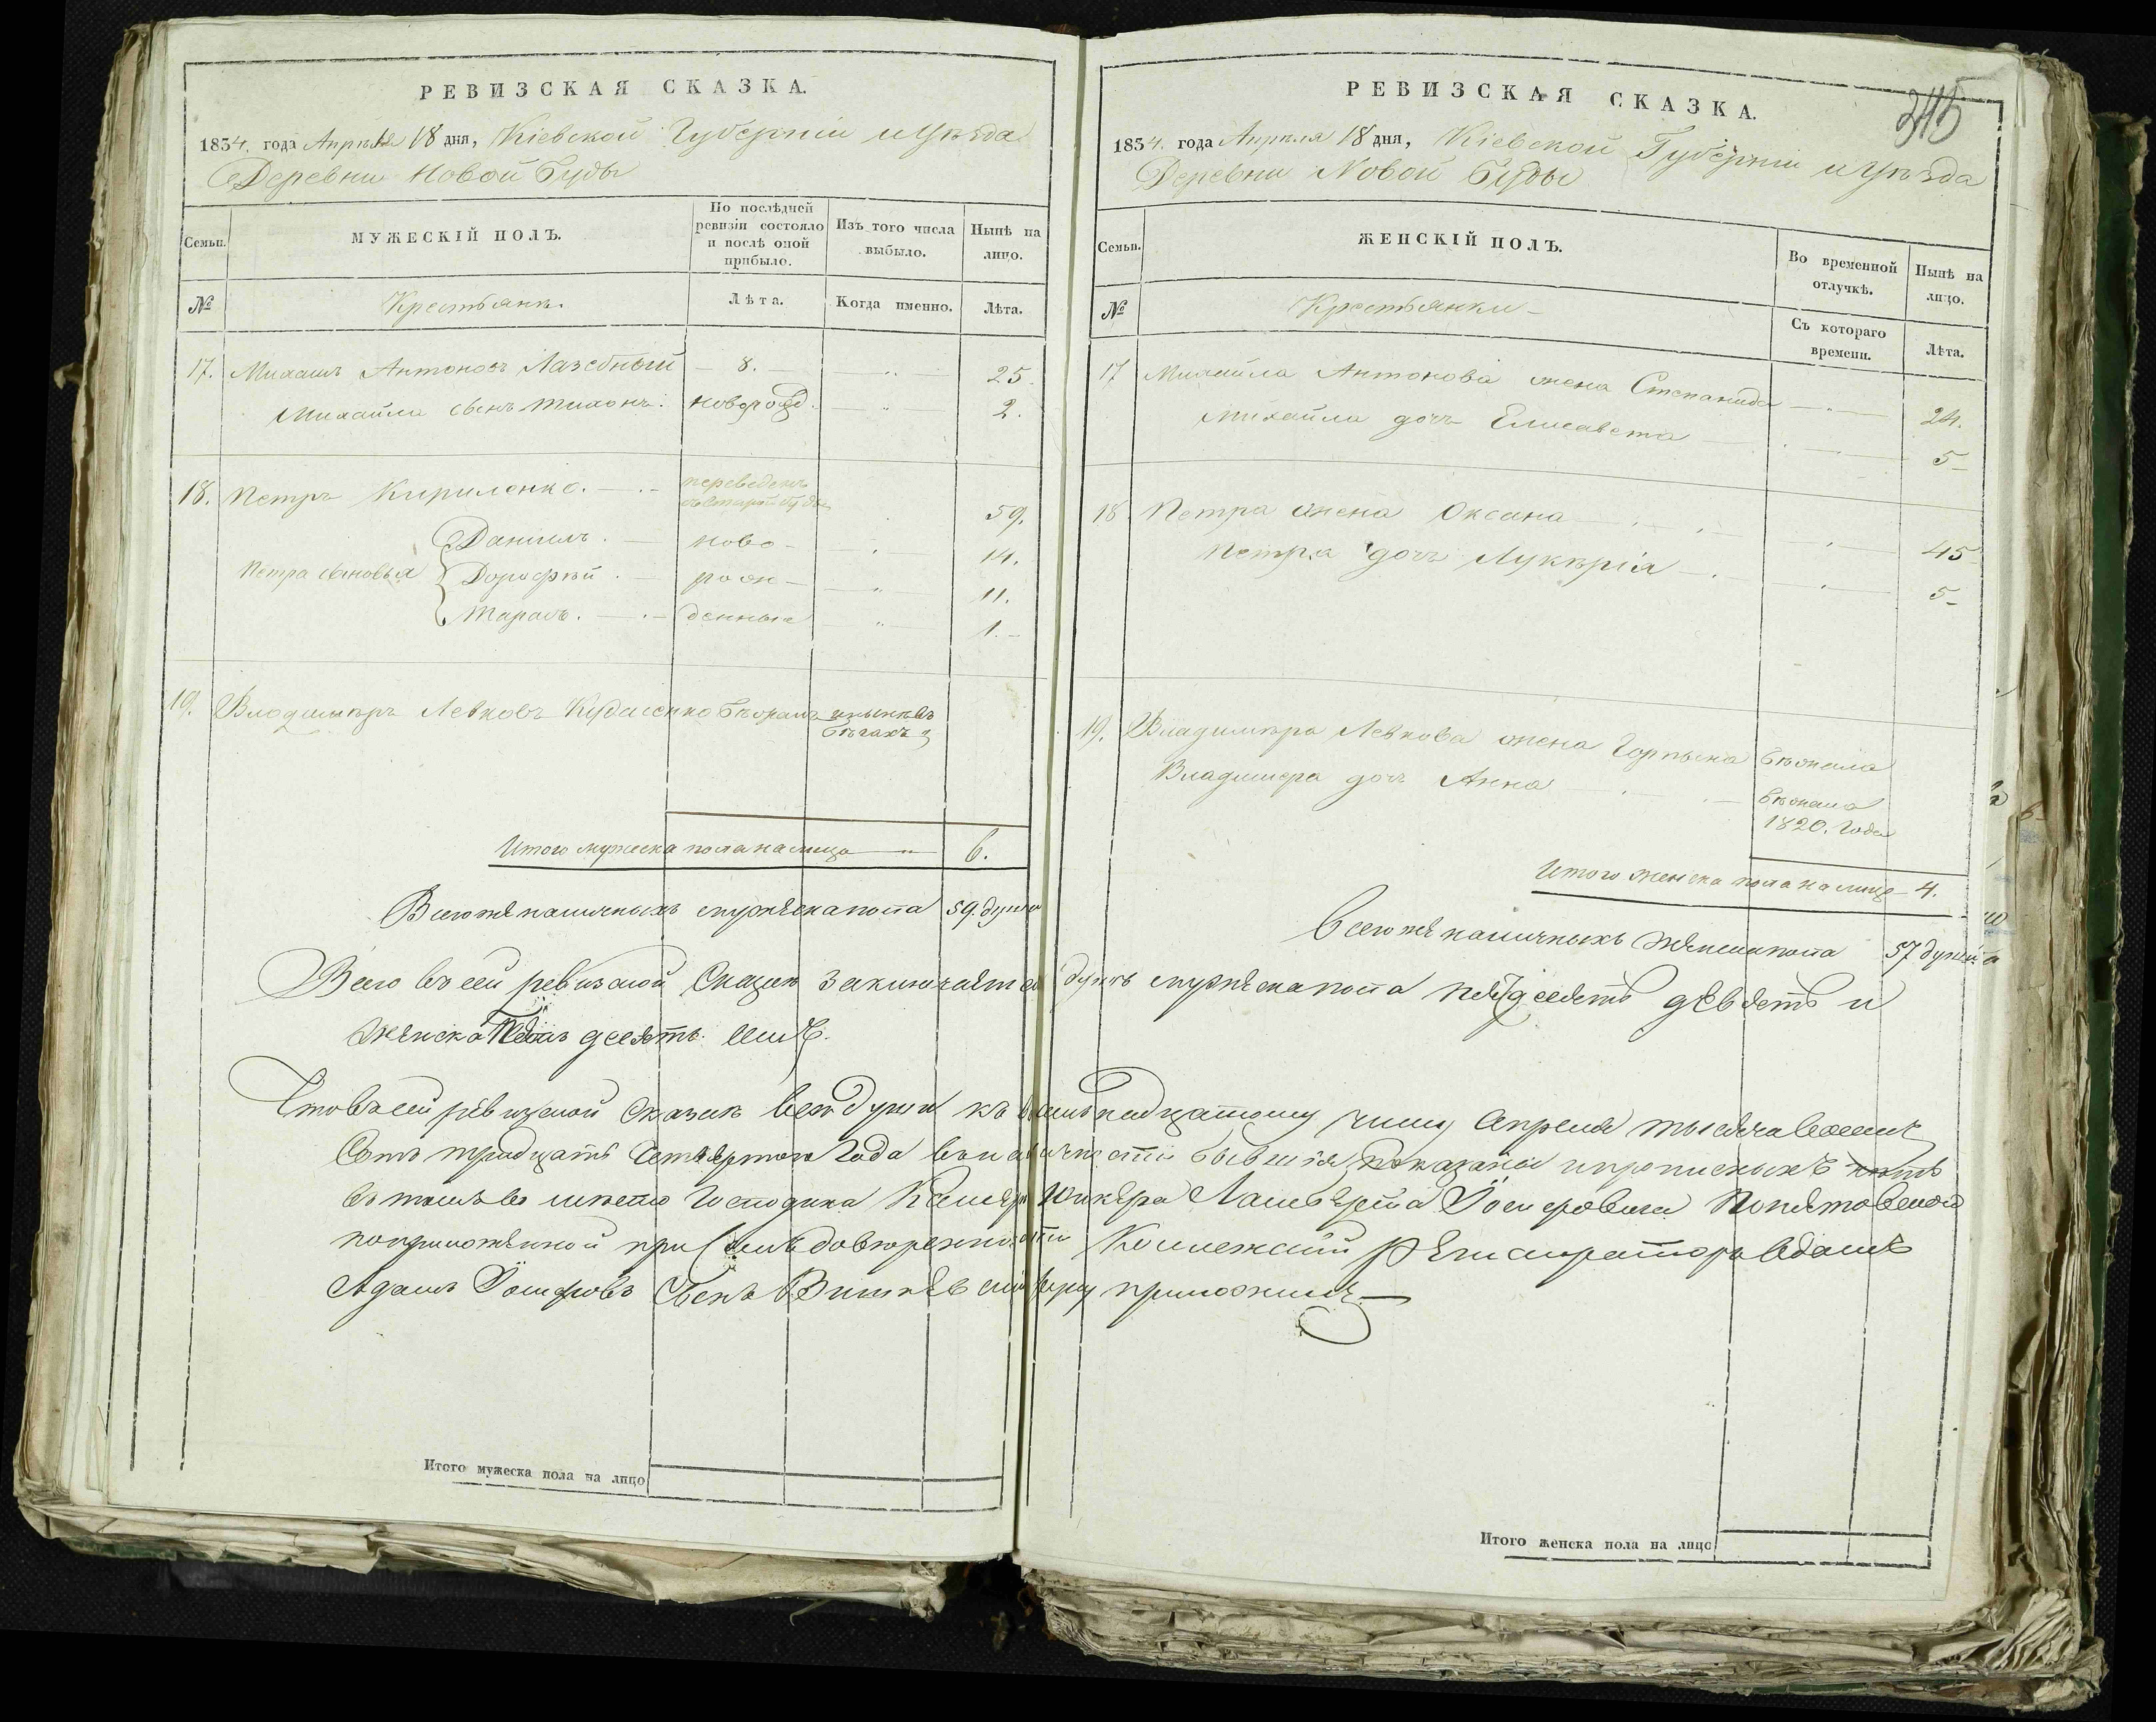 РЕВИЗСКАЯ СКАЗКА.
1834. года Апрѣля 18 дня, Кіевской Губерніи и Уѣзда
Деревни Новой Буды
Семьи.
МУЖЕСКІЙ ПОЛЪ.
По послѣдней ревизіи состояло и послѣ оной прибыло.
Изъ того числа выбыло.
Нынѣ на лицо.
№
Крестьянъ.
Лѣта.
Когда именно.
Лѣта.
17. Михаилъ Антоновъ Лазебный 8. 25.
Михайла сынъ Тихонъ. новорожд. 2.
18. Петръ Кириленко. переведенъ 59.
Петра сыновья
Даниилъ. ново- 14.
Дорофѣй. рож- 11.
Тарасъ. денные 1.
19. Владимѣръ Левковъ Бѣжалъ и нынѣ въ бѣгахъ
Итого мужеска пола на лицо 6.
Всего же наличныхъ мужеска пола 59. душъ
РЕВИЗСКАЯ СКАЗКА.
1834. года Апрѣля 18 дня, Кіевской Губерніи и Уѣзда
Деревни Новой Буды
Семьи.
ЖЕНСКІЙ ПОЛЪ.
Во временной отлучкѣ.
Нынѣ на лицо.
№
Крестьянки
Съ котораго времени.
Лѣта.
17 Михайла Антонова жена Степанида 24.
Михайла дочь Елисавета 5
18 Петра жена Оксана 45
Петра дочь Лукѣрія 5
19. Владимѣра Левкова жена Горпына бѣжала
Владимера дочь Анна бѣжала 1820. года
Итого женска пола на лицо 4.
Всего же наличныхъ женска пола 57 душъ
Всего въ сей ревизской Сказке заключается душъ мужеска пола пядесятъ девять и
женска пядесятъ семь.
Что въ сей ревизской сказкѣ все души къ восемнадцатому числу Апреля тысяча восемь
Сотъ тридцать Четвертого Года въ наличности бывшія показаны и прописныхъ нѣтъ
въ томъ въ мѣсто Господина Камеръ Юнкера Понятовской
по приложенной при семъ доверенности Коллежскій Регистраторъ Адамъ
Адамъ Сынъ руку приложилъ
Итого мужеска пола на лицо
Итого женска пола на лицо